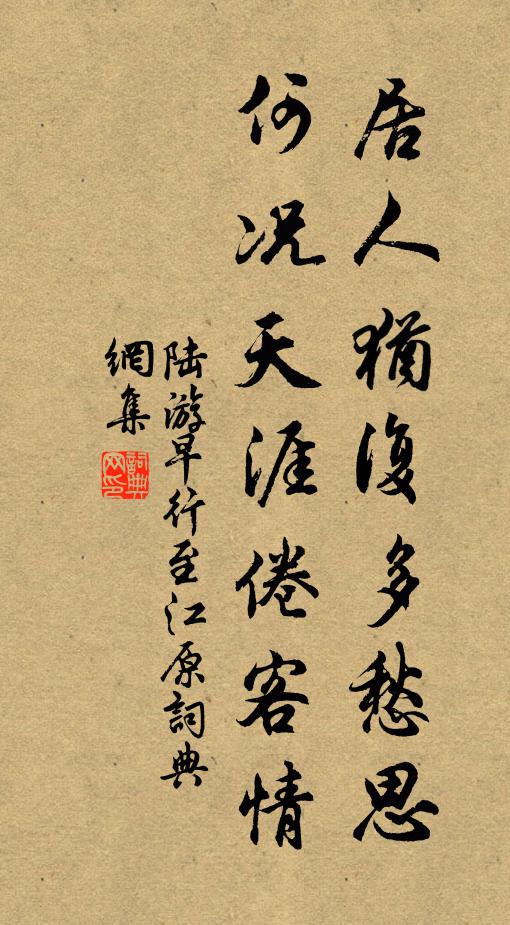 居人猶復多愁思
何况天涯倦客情
陆游早行至江原詞典
網集
詞典
网印